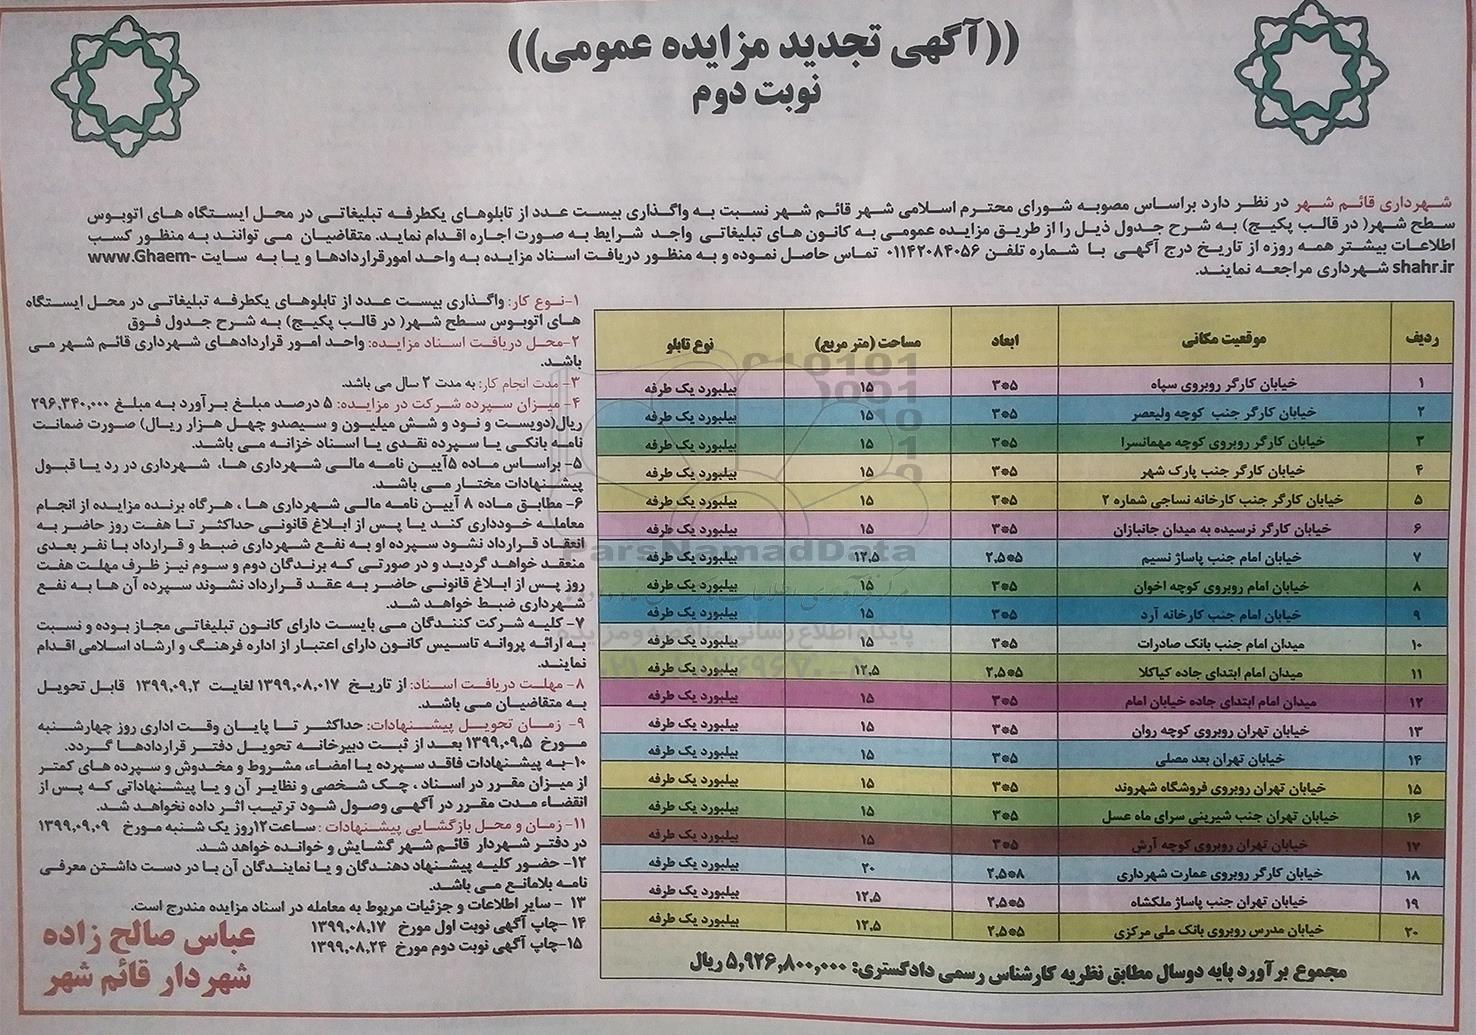 ((آگهی تجدید مزایده عمومی))
نوبت دوم
شهرداری قائم شهر در نظر دارد براساس مصوبه شورای محترم اسلامی شهر قائم شهر نسبت به واگذاری بیست عدد از تابلوهای یکطرفه تبلیغاتی در محل ایستگاه های اتوبوس
سطح شهر( در قالب پکیج) به شرح جدول ذیل را از طریق مزایده عمومی به کانون های تبلیغاتی واجد شرایط به صورت اجاره اقدام نماید. متقاضیان می توانند به منظور کسب
اطلاعات بیشتر همه روزه از تاریخ درج آگهی با شماره تلفن ۰۱۱۴۲۰۸۴۰۵۶ تماس حاصل نموده و به منظور دریافت اسناد مزایده به واحد امورقراردادها و یا به سایت www.Ghaem-
shahr.ir شهرداری مراجعه نمایند.
ردیف موقعیت مکانی ابعاد مساحت (متر مربع) نوع تابلو
۱ خیابان کارگر روبروی سپاه ۳*۵ ۱۵ بیلبورد یک طرفه
۲ خیابان کارگر جنب کوچه ولیعصر ۳*۵ ۱۵ بیلبورد یک طرفه
۳ خیابان کارگر روبروی کوچه مهمانسرا ۳*۵ ۱۵ بیلبورد یک طرفه
۴ خیابان کارگر جنب پارک شهر ۳*۵ ۱۵ بیلبورد یک طرفه
۵ خیابان کارگر جنب کارخانه نساجی شماره ۲ ۳*۵ ۱۵ بیلبورد یک طرفه
۶ خیابان کارگر نرسیده به میدان جانبازان ۳*۵ ۱۵ بیلبورد یک طرفه
۷ خیابان امام جنب پاساژ نسیم ۲،۵*۵ ۱۲،۵ بیلبورد یک طرفه
۸ خیابان امام روبروی کوچه اخوان ۳*۵ ۱۵ بیلبورد یک طرفه
۹ خیابان امام جنب کارخانه آرد ۳*۵ ۱۵ بیلبورد یک طرفه
۱۰ میدان امام جنب بانک صادرات ۳*۵ ۱۵ بیلبورد یک طرفه
۱۱ میدان امام ابتدای جاده کیاکلا ۲،۵*۵ ۱۲،۵ بیلبورد یک طرفه
۱۲ میدان امام ابتدای جاده خیابان امام ۳*۵ ۱۵ بیلبورد یک طرفه
۱۳ خیابان تهران روبروی کوچه روان ۳*۵ ۱۵ بیلبورد یک طرفه
۱۴ خیابان تهران بعد مصلی ۳*۵ ۱۵ بیلبورد یک طرفه
۱۵ خیابان تهران روبروی فروشگاه شهروند ۳*۵ ۱۵ بیلبورد یک طرفه
۱۶ خیابان تهران جنب شیرینی سرای ماه عسل ۳*۵ ۱۵ بیلبورد یک طرفه
۱۷ خیابان تهران روبروی کوچه آرش ۳*۵ ۱۵ بیلبورد یک طرفه
۱۸ خیابان کارگر روبروی عمارت شهرداری ۲،۵*۸ ۲۰ بیلبورد یک طرفه
۱۹ خیابان تهران جنب پاساژ ملکشاه ۲،۵*۵ ۱۲،۵ بیلبورد یک طرفه
۲۰ خیابان مدرس روبروی بانک ملی مرکزی ۲،۵*۵ ۱۲،۵ بیلبورد یک طرفه
مجموع برآورد پایه دوسال مطابق نظریه کارشناس رسمی دادگستری: ۵,۹۲۶,۸۰۰,۰۰۰ ریال
۱-نوع کار: واگذاری بیست عدد از تابلوهای یکطرفه تبلیغاتی در محل ایستگاه
های اتوبوس سطح شهر( در قالب پکیج) به شرح جدول فوق
۲-محل دریافت اسناد مزایده: واحد امور قراردادهای شهرداری قائم شهر می
باشد.
۳- مدت انجام کار: به مدت ۲ سال می باشد.
۴- میزان سپرده شرکت در مزایده: ۵ درصد مبلغ برآورد به مبلغ ۲۹۶,۳۴۰,۰۰۰
ریال(دویست و نود و شش میلیون و سیصدو چهل هزار ریال) صورت ضمانت
نامه بانکی یا سپرده نقدی یا اسناد خزانه می باشد.
۵- براساس ماده ۵آیین نامه مالی شهرداری ها، شهرداری در رد یا قبول
پیشنهادات مختار می باشد.
۶- مطابق ماده ۸ آیین نامه مالی شهرداری ها ، هرگاه برنده مزایده از انجام
معامله خودداری کند یا پس از ابلاغ قانونی حداکثر تا هفت روز حاضر به
انعقاد قرارداد نشود سپرده او به نفع شهرداری ضبط و قرارداد با نفر بعدی
منعقد خواهد گردید و در صورتی که برندگان دوم و سوم نیز ظرف مهلت هفت
روز پس از ابلاغ قانونی حاضر به عقد قرارداد نشوند سپرده آن ها به نفع
شهرداری ضبط خواهد شد.
۷- کلیه شرکت کنندگان می بایست دارای کانون تبلیغاتی مجاز بوده و نسبت
به ارائه پروانه تاسیس کانون دارای اعتبار از اداره فرهنگ و ارشاد اسلامی اقدام
نمایند.
۸- مهلت دریافت اسناد: از تاریخ ۱۳۹۹،۰۸،۰۱۷ لغایت ۱۳۹۹،۰۹،۲ قابل تحویل
به متقاضیان می باشد.
۹- زمان تحویل پیشنهادات: حداکثر تا پایان وقت اداری روز چهارشنبه
مورخ ۱۳۹۹،۰۹،۵ بعد از ثبت دبیرخانه تحویل دفتر قراردادها گردد.
۱۰-به پیشنهادات فاقد سپرده یا امضاء، مشروط و مخدوش و سپرده های کمتر
از میزان مقرر در اسناد ، چک شخصی و نظایر آن و یا پیشنهاداتی که پس از
انقضاء مدت مقرر در آگهی وصول شود ترتیب اثر داده نخواهد شد.
۱۱- زمان و محل بازگشایی پیشنهادات : ساعت۱۲روز یک شنبه مورخ ۱۳۹۹،۰۹،۰۹
در دفتر شهردار قائم شهر گشایش و خوانده خواهد شد.
۱۲- حضور کلیه پیشنهاد دهندگان و یا نمایندگان آن با در دست داشتن معرفی
نامه بلامانع می باشد.
۱۳ - سایر اطلاعات و جزئیات مربوط به معامله در اسناد مزایده مندرج است.
۱۴ -چاپ آگهی نوبت اول مورخ ۱۳۹۹،۰۸،۱۷
۱۵-چاپ آگهی نوبت دوم مورخ ۱۳۹۹،۰۸،۲۴
عباس صالح زاده
شهردار قائم شهر
ParsNamadData
پایگاه اطلاع رسانی مناقصه و مزایده